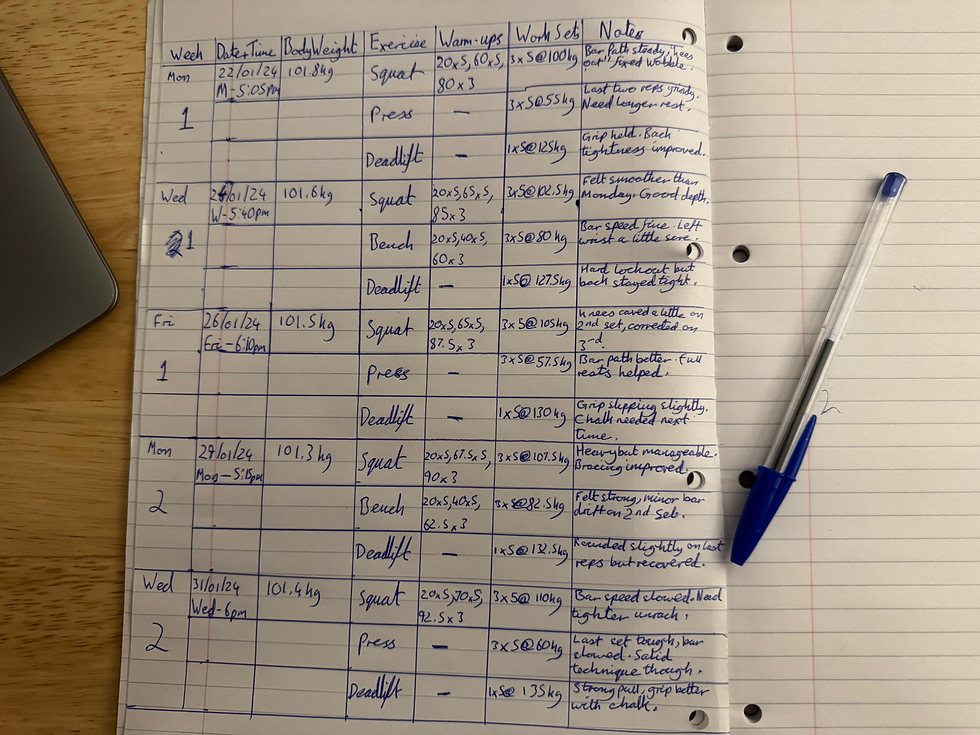 Week Date+Time BodyWeight Exercise Warm-ups Work Sets Notes
Mon 22/01/24 101.8kg Squat 20x5,60x5, 3x5@100kg Bar Path steady, "knees
M-5:05pm 80x3 out" fixed wobble.
1 Press — 3x5@55kg Last two reps grindy.
Need longer rest.
Deadlift — 1x5@125kg Grip held. Back
tightness improved.
Wed 24/01/24 101.6kg Squat 20x5,65x5, 3x5@102.5kg Felt smoother than
W-5:40pm 85x3 Monday. Good depth.
1 Bench 20x5,40x5, 3x5@80kg Bar speed fine. Left
60x3 wrist a little sore.
Deadlift — 1x5@127.5kg Hard lockout but
back stayed tight.
Fri 26/01/24 101.5kg Squat 20x5,65x5, 3x5@105kg Knees caved a little on
Fri-6:10pm 87.5x3 2nd set, corrected on
3rd.
1 Press — 3x5@57.5kg Bar path better. Full
rests helped.
Deadlift — 1x5@130kg Grip slipping slightly.
Chalk needed next
time.
Mon 29/01/24 101.3kg Squat 20x5,67.5x5, 3x5@107.5kg Heavy but manageable.
Mon-5:15pm 90x3 Bracing improved.
2 Bench 20x5,40x5, 3x5@82.5kg Felt strong, minor bar
62.5x3 drift on 2nd set.
Deadlift — 1x5@132.5kg Rounded slightly on last
reps but recovered.
Wed 31/01/24 101.4kg Squat 20x5,70x5, 3x5@110kg Bar speed slowed. Need
Wed-6pm 92.5x3 tighter unrack.
2 Press — 3x5@60kg Last set tough, bar
slowed. Solid
technique though.
Deadlift — 1x5@135kg Strong pull, grip better
with chalk.